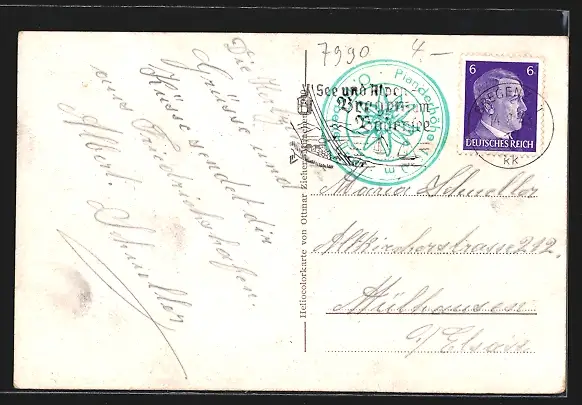 Die Herzl.
Grüsse und
Küsse sendet dir
aus Friedrichshafen.
Albert. Schmeller
Heliocolorkarte von Ottmar Zieher, München
7990
4.–
See und Alpen
Bregenz am
Bodensee
Pfänderhöhe
6 6
DEUTSCHES REICH
BREGENZ
kk
Maria Schmeller
Altkircherstrasse 212.
Mülhausen
i/Elsass